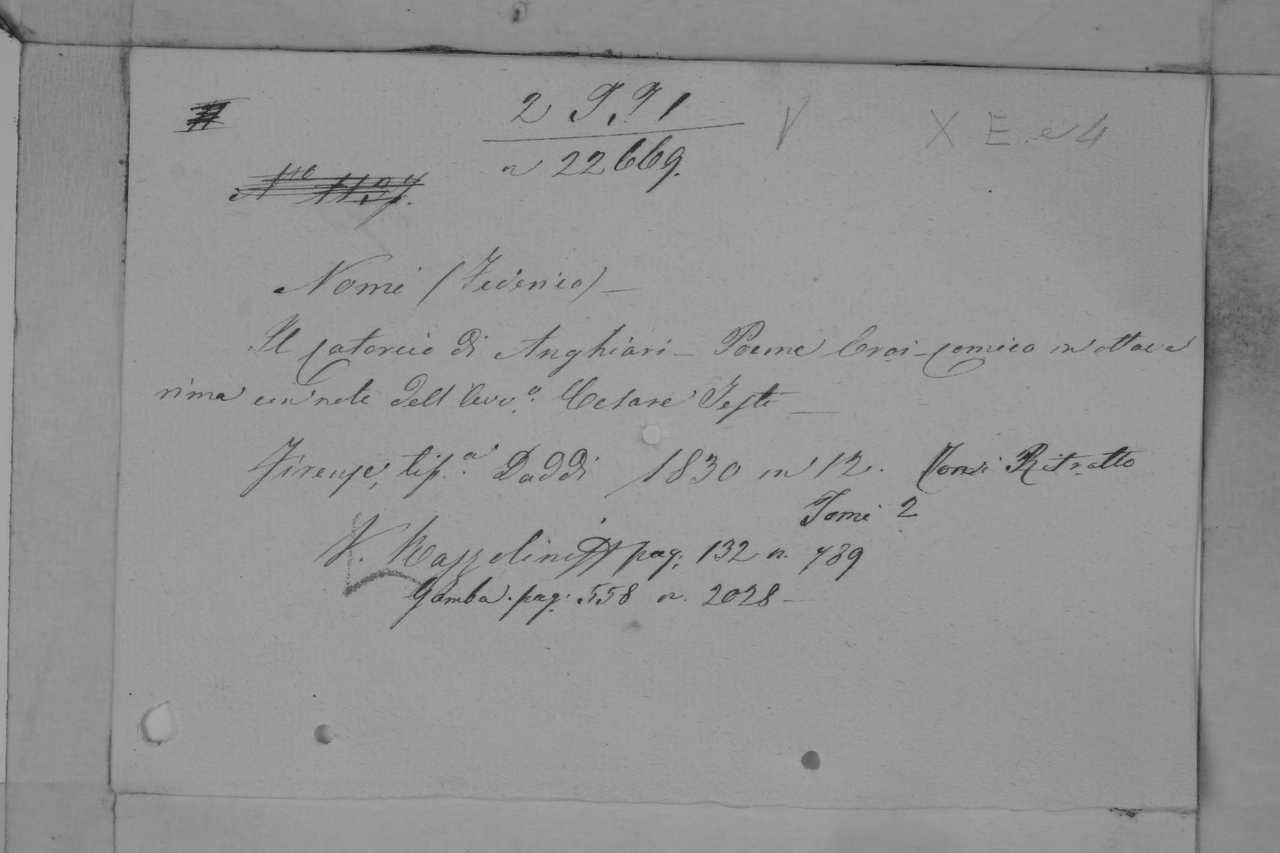 2 T.T 1 V X E. e 4
n 22669.
No 1137.
Nomi (Federico) —
Il catorcio di Anghiari — Poema Eroi-comico in ottava
rima con note dell'Avv.o Cesare Testi —
Firenze, tip.a Daddi 1830 in 12. Con Ritratto
Tomi 2
V. Razzolini pag. 132 n. 789
Gamba. pag. 558 n. 2028 —